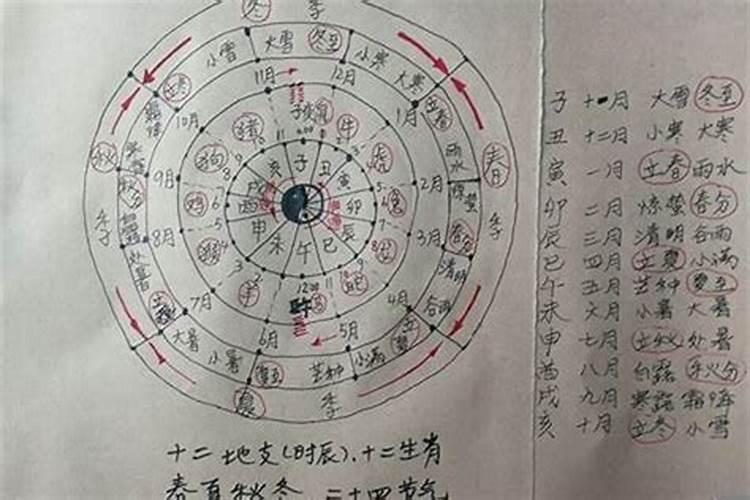 冬 季
大雪 冬至 小寒 大寒
立春 雨水 惊蛰 春分 清明 谷雨
立夏 小满 芒种 夏至 小暑 大暑
立秋 处暑 白露 秋分 寒露 霜降
立冬 小雪
春 季
夏 季
秋 季
11月 12月 1月 2月 3月 4月 5月 6月 7月 8月 9月 10月
鼠 牛 虎 兔 龙 蛇 马 羊 猴 鸡 狗 猪
子 丑 寅 卯 辰 巳 午 未 申 酉 戌 亥
子 十一月 大雪 冬至
丑 十二月 小寒 大寒
寅 一月 立春 雨水
卯 二月 惊蛰 春分
辰 三月 清明 谷雨
巳 四月 立夏 小满
午 五月 芒种 夏至
未 六月 小暑 大暑
申 七月 立秋 处暑
酉 八月 白露 秋分
戌 九月 寒露 霜降
亥 十月 立冬 小雪
十二地支(时辰)、十二生肖
春夏秋冬 二十四节气